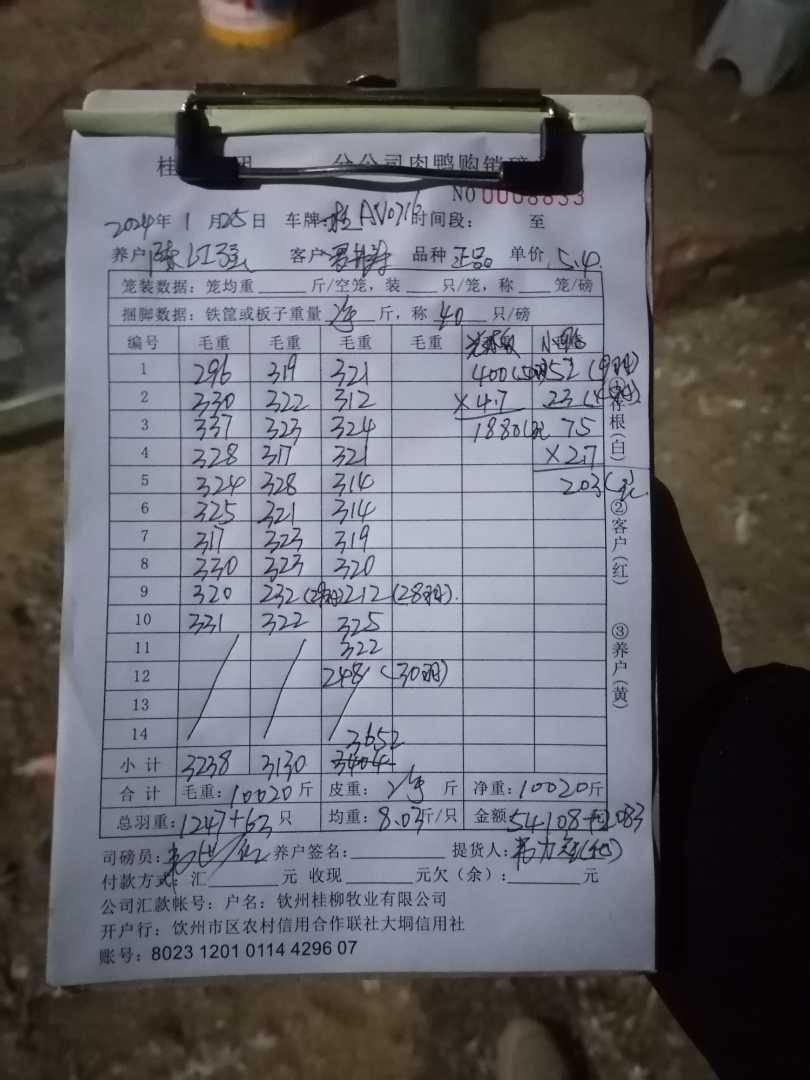 桂 分公司肉鸭购销磅
NO 0008833
2024年1月25日 车牌:桂AV0716 时间段: 至
养户 客户 品种 正品 单价 5.4
笼装数据:笼均重 斤/空笼,装 只/笼,称 笼/磅
捆脚数据:铁筐或板子重量 净 斤,称 40 只/磅
编号 毛重 毛重 毛重 毛重
1 296 319 321 400 52(9羽)
2 330 322 312 ×4.7 23
3 337 323 324 1880元 75
4 328 317 321 ×2.7
5 324 328 314 203元
6 325 321 314
7 317 323 319
8 330 323 320
9 320 232(29羽) 212(28羽)
10 331 322 325
11 322
12 248(30羽)
13
14 3652
小计 3238 3130 3404
合计 毛重:10020斤 皮重:净 斤 净重:10020斤
总羽重:1247+63只 均重:8.03斤/只 金额:54108+2083
司磅员: 养户签名: 提货人:
付款方式:汇 元 收现 元欠(余): 元
公司汇款帐号:户名:钦州桂柳牧业有限公司
开户行:钦州市区农村信用合作联社大垌信用社
账号:8023 1201 0114 4296 07
①存根(白)
②客户(红)
③养户(黄)